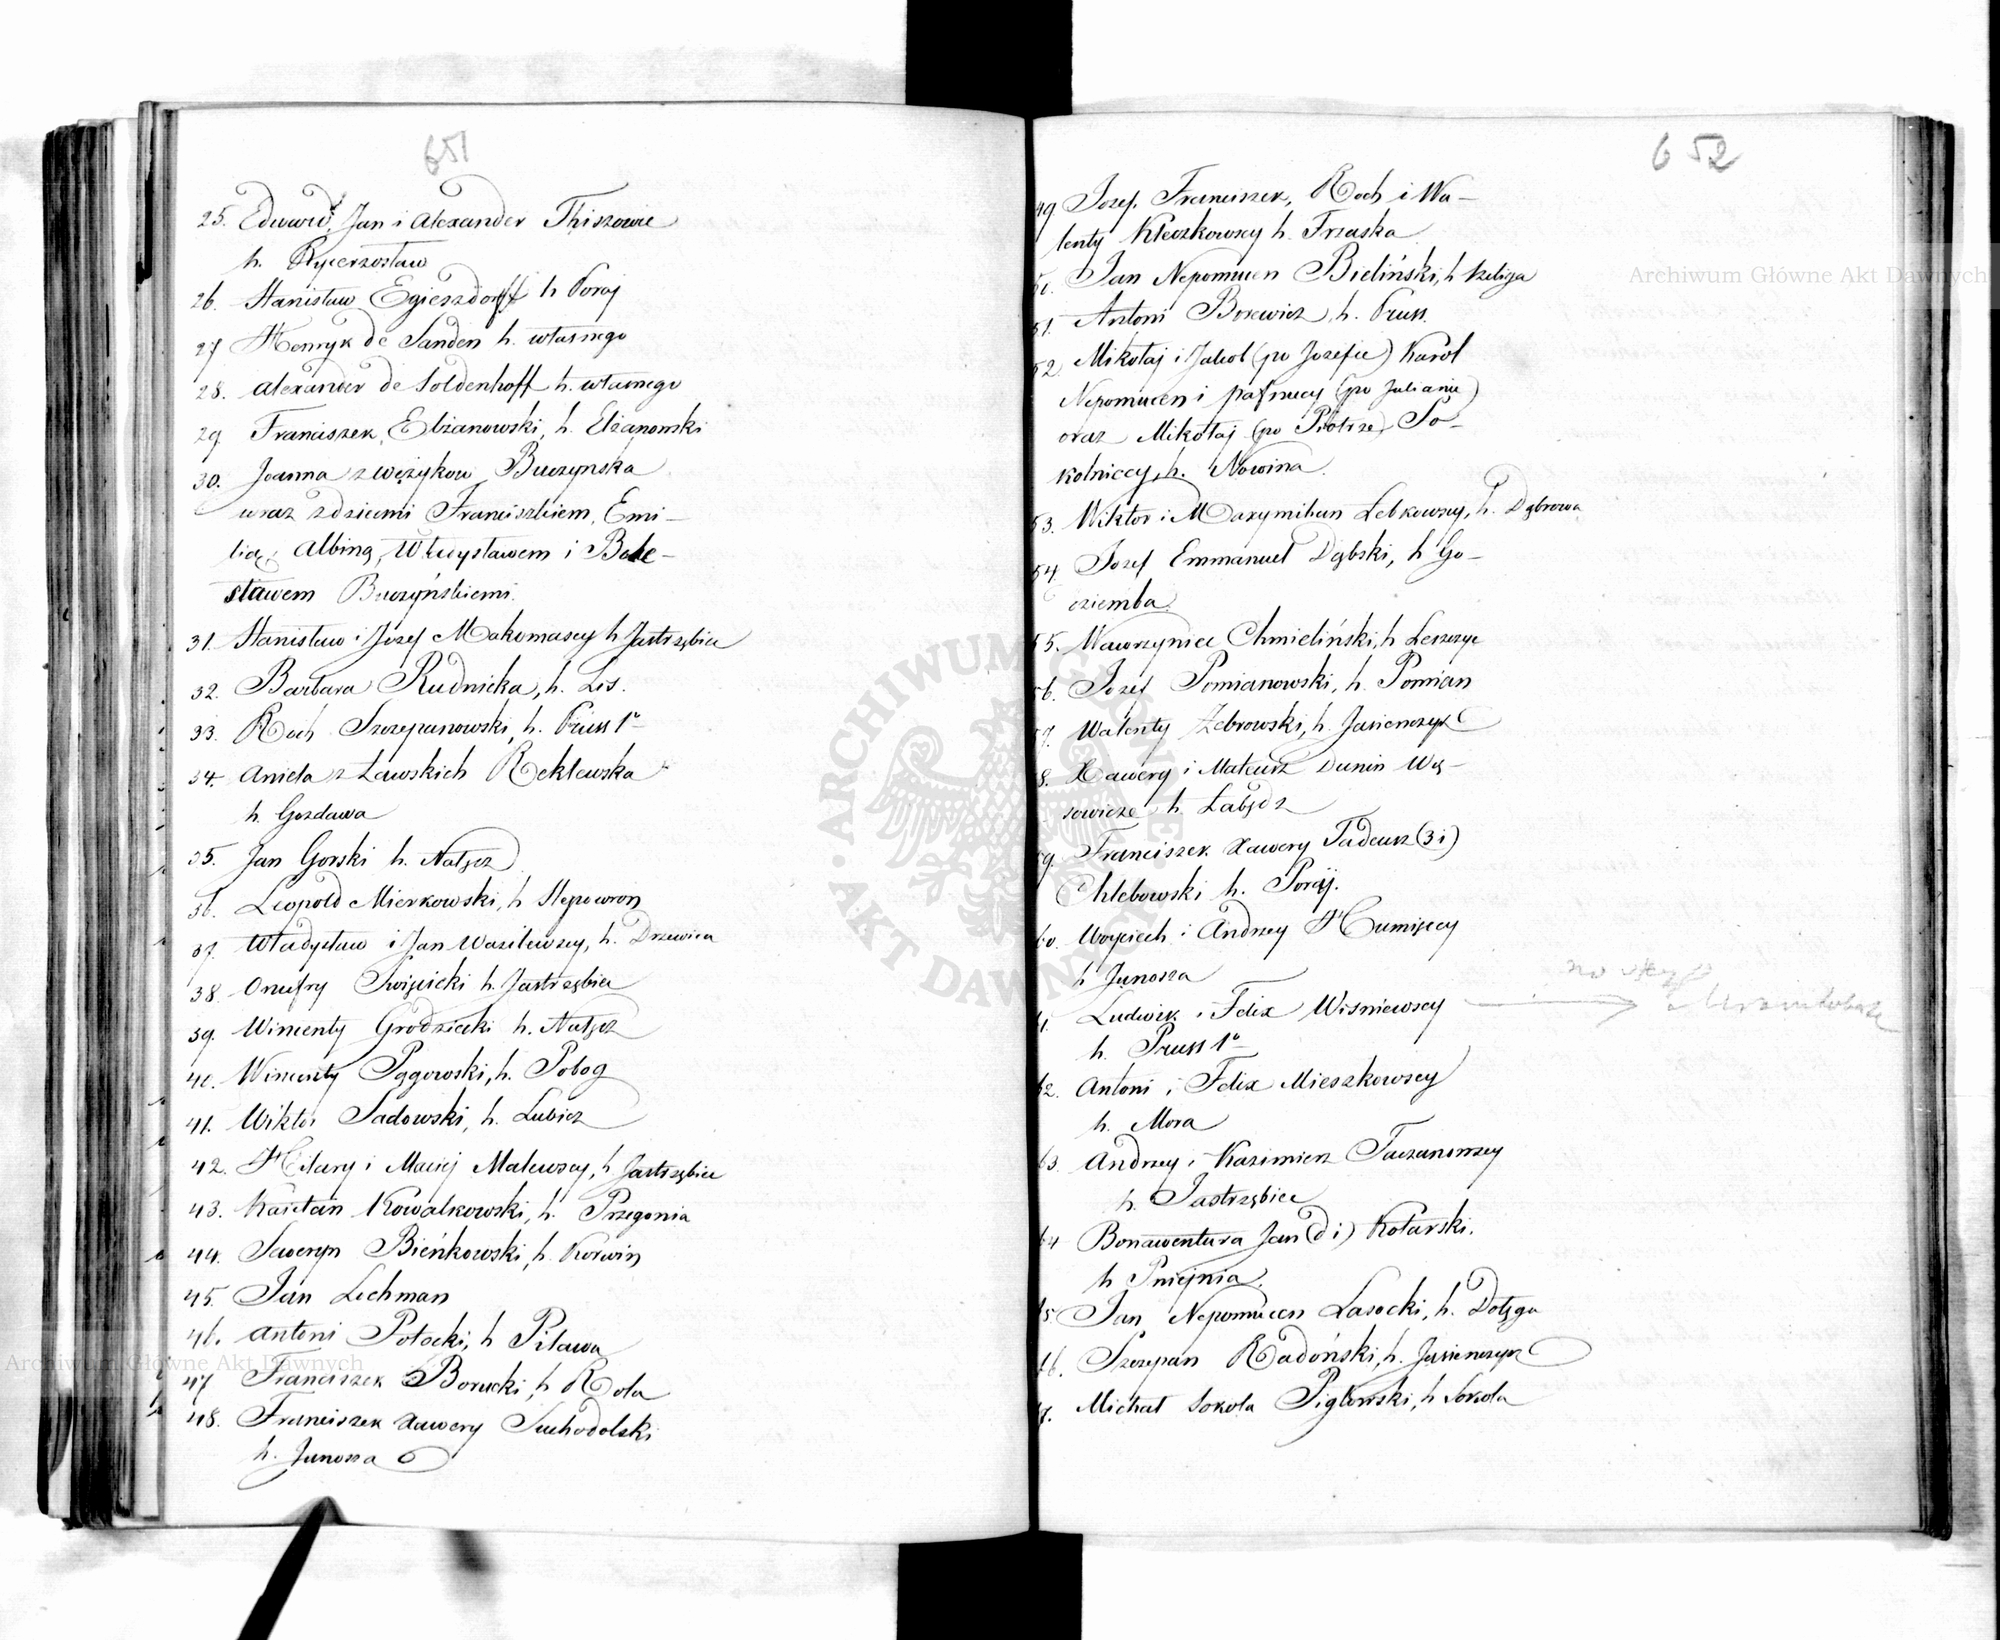 651
25. Eduard, Jan i Alexander Thiszowie
h. Rycerzosław
26. Stanisław Egierszdorff h Poraj
27 Henryk de Sanden h. własnego
28. Alexander de Soldenhoff h. własnego
29 Franciszek Elżanowski, h. Elżanowski
30. Joanna z Wężyków Buczynska
wraz z dziećmi Franciszkiem, Emi-
lią, Albiną, Władysławem i Bole-
sławem Buczyńskiemi.
31. Stanisław i Józef Makomascy h Jastrzębiec
32. Barbara Rudnicka, h. Lis.
33. Roch Szczepanowski, h. Pruss 1o
34. Aniela z Ławskich Reklewska
h. Gozdawa
35. Jan Gorski h. Nałęcz
36. Leopold Mierkowski, h Slepowron
37. Władysław i Jan Wasilewscy, h. Drzewica
38. Onufry Swięcicki h. Jastrzębiec
39. Wincenty Grodzicki h. Nałęcz
40. Wincenty Pągowski, h. Pobog
41. Wiktor Sadowski, h. Lubicz
42. Hilary i Maciej Malewscy, h. Jastrzębiec
43. Kajetan Kowalkowski, h. Przegonia
44. Seweryn Bieńkowski, h. Korwin
45. Jan Lechman
46. Antoni Potocki, h Pilawa
47 Franciszek Borucki, h Rola
48. Franciszek Xawery Suchodolski
h. Junosza
652
49 Jozef, Franciszek, Roch i Wa-
lenty Kleczkowscy h. Trzaska
50. Jan Nepomucen Bieliński, h Szeliga
51. Antoni Borewicz, h. Pruss.
52. Mikołaj i Jakob (po Jozefie) Karol
Nepomucen i Pafnucy (po Julianie)
oraz Mikołaj (po Piotrze) So-
kolniccy, h. Nowina.
53. Wiktor i Maxymilian Łebkowscy, h. Dąbrowa
54. Jozef Emmanuel Dąbski, h Go-
dziemba.
55. Wawrzyniec Chmieliński, h Leszczyc
56. Jozef Pomianowski, h. Pomian
57. Walenty Żebrowski, h. Jasienczyk
58. Xawery i Mateusz Dunin Wą-
sowicze h. Łabędz
59. Franciszek Xawery Tadeusz (3 i)
Chlebowski h. Poraj.
60. Woyciech i Andrzey Humięccy
h Junosza
61. Ludwik i Felix Wiśniewscy
h. Pruss 1o
62. Antoni i Felix Mieszkowscy
h. Mora
63. Andrzey i Kazimierz Taczanowscy
h. Jastrzębiec
64 Bonawentura Jan (d i) Kotarski.
h Pniejnia.
65. Jan Nepomucen Lasocki, h. Dołęga
66. Szczepan Radoński, h. Jasienczyk
67. Michał Sokola Piglowski, h Sokola
Archiwum Główne Akt Dawnych
Archiwum Główne Akt Dawnych
ARCHIWUM GŁÓWNE AKT DAWNYCH